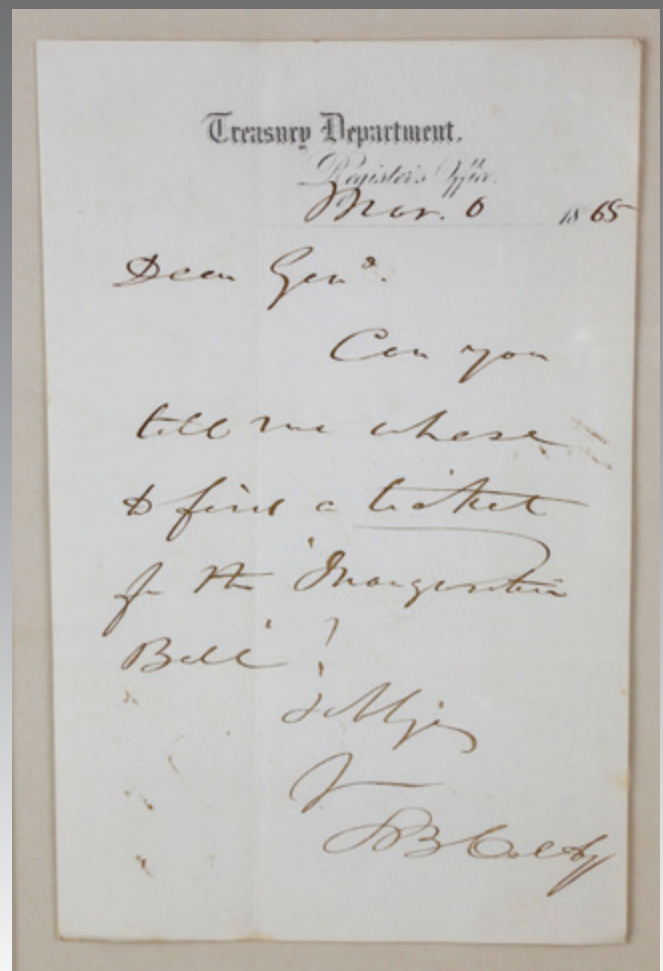 Treasury Department.
Register's Office.
Mar. 6 1865
Dear Genl.
Can you
tell me where
to find a ticket
for the "Inauguration
Ball"?
&
Yours
S B Colby